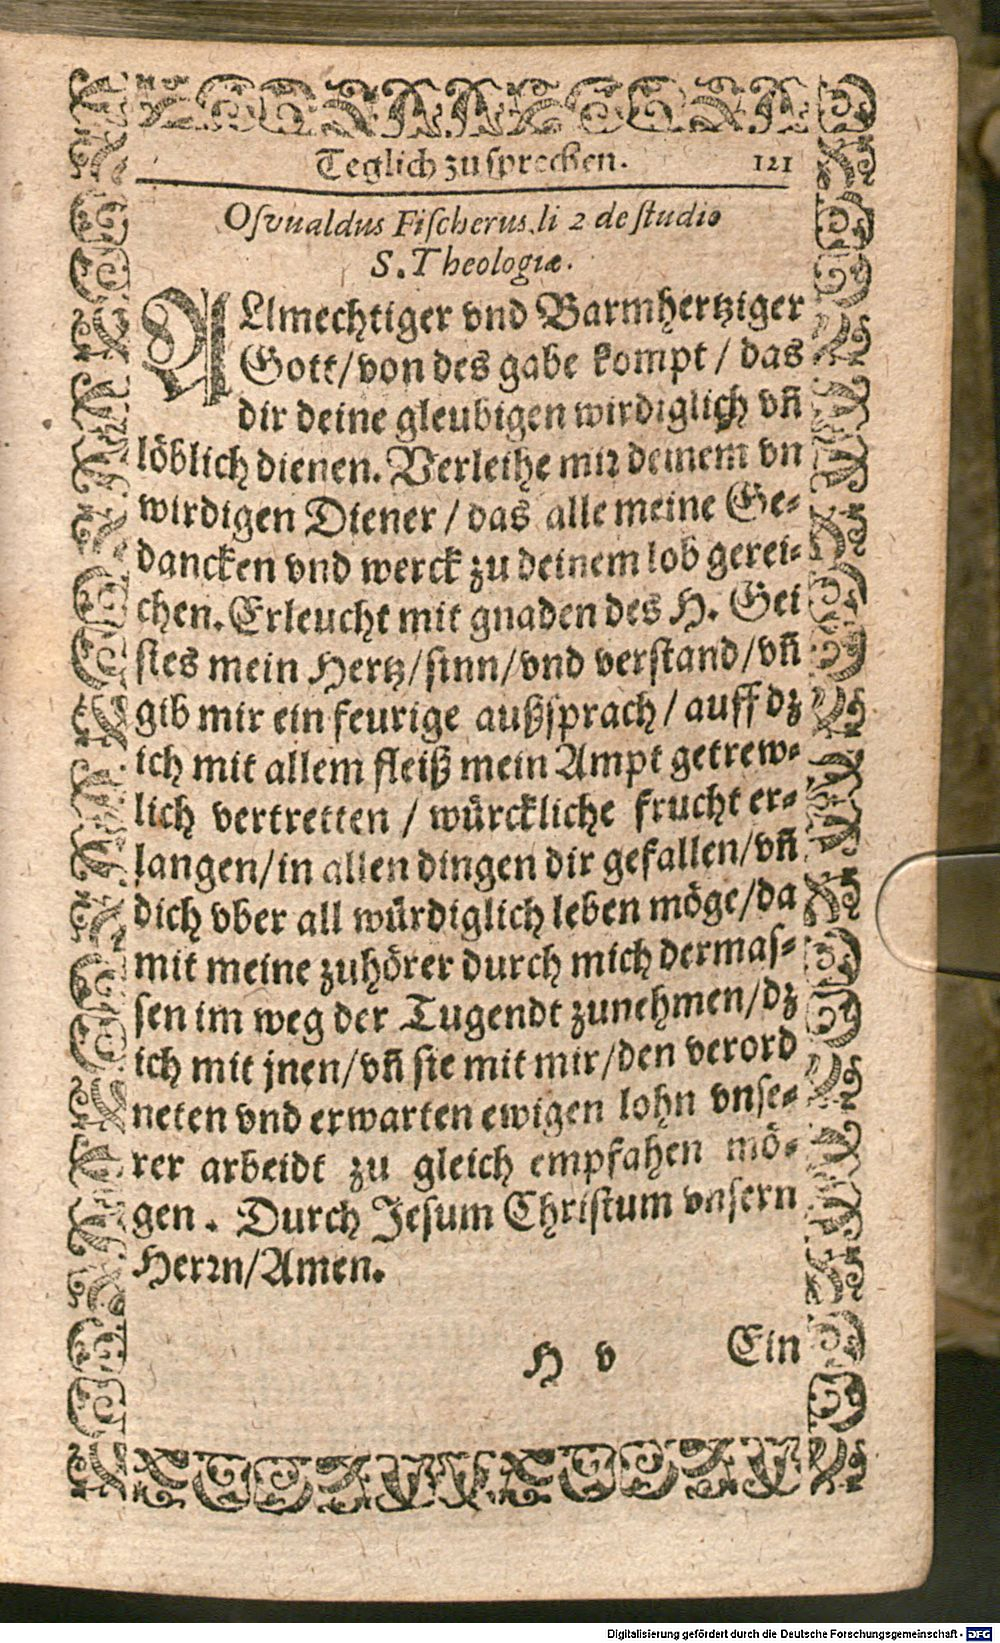 Teglich zu sprechen. 121
Osvualdus Fischerus. li 2 de studio
S. Theologiæ.
ALlmechtiger vnd Barmhertziger
Gott/ von des gabe kompt / das
dir deine gleubigen wirdiglich vñ
löblich dienen. Verleihe mir deinem vn
wirdigen Diener / das alle meine Ge-
dancken vnd werck zu deinem lob gerei-
chen. Erleucht mit gnaden des H. Gei
stes mein Hertz/ sinn/ vnd verstand/ vñ
gib mir ein feurige außsprach/ auff dz
ich mit allem fleiß mein Ampt getrew-
lich vertretten / würckliche frucht er-
langen/ in allen dingen dir gefallen/ vñ
dich vber all würdiglich leben möge/ da
mit meine zuhörer durch mich dermas-
sen im weg der Tugendt zunehmen/ dz
ich mit jnen/ vñ sie mit mir/ den verord
neten vnd erwarten ewigen lohn vnse-
rer arbeidt zu gleich empfahen mö-
gen. Durch Jesum Christum vnsern
Herrn/ Amen.
H v Ein
Digitalisierung gefördert durch die Deutsche Forschungsgemeinschaft - DFG